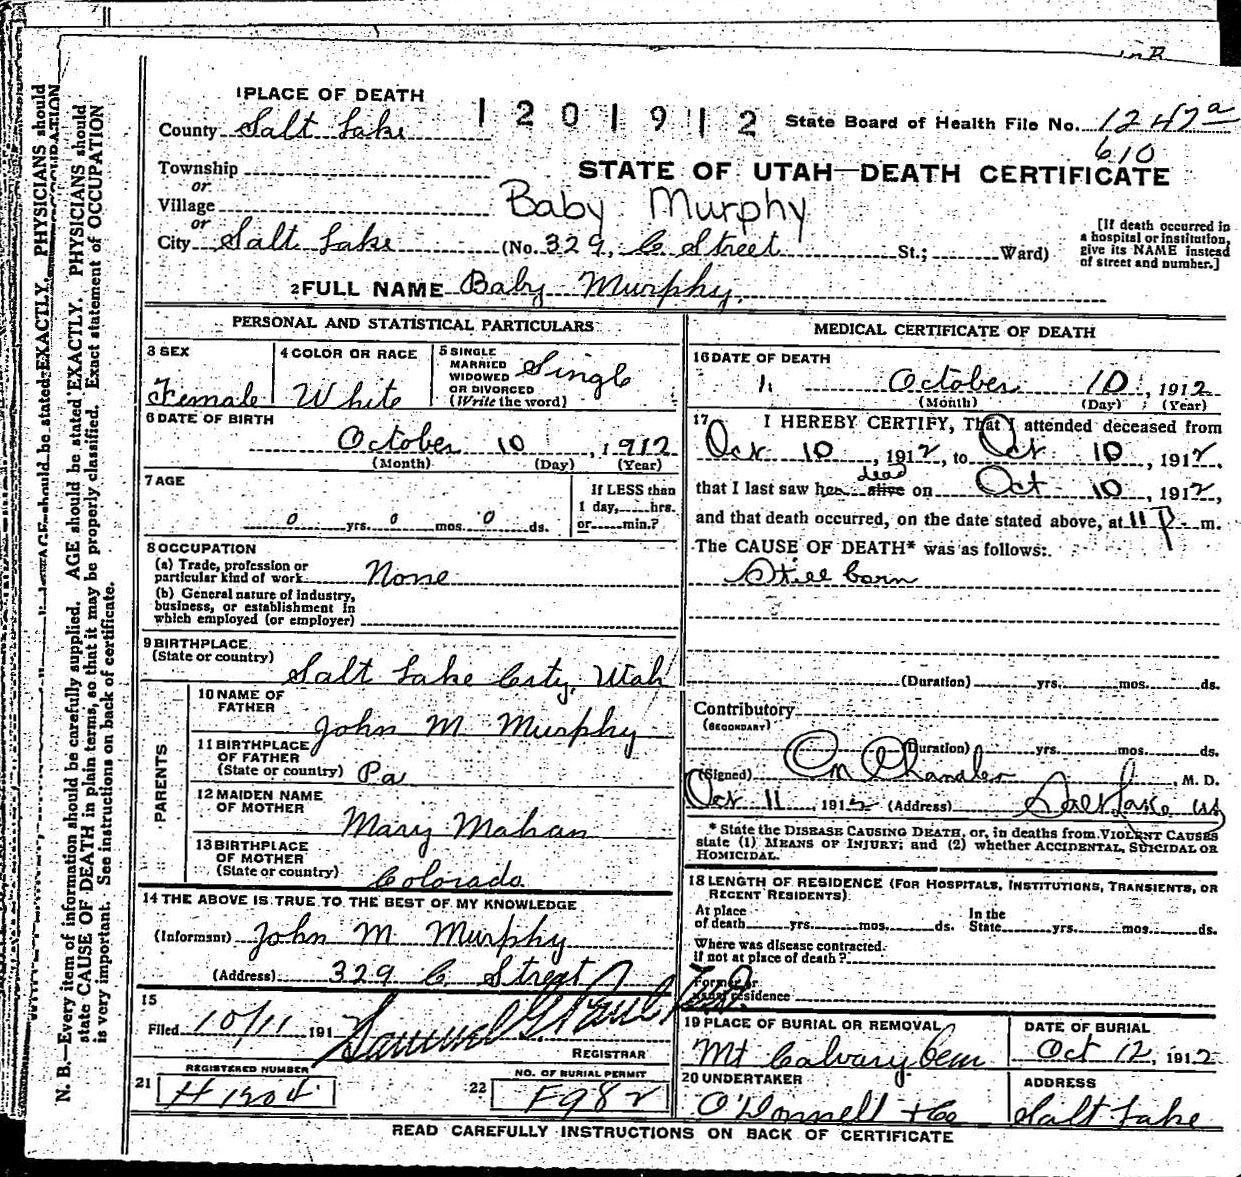 1 PLACE OF DEATH
1 2 0 1 9 1 2
County Salt Lake
State Board of Health File No. 1247a
610
Township
or
STATE OF UTAH—DEATH CERTIFICATE
Village
Baby Murphy
or
City Salt Lake (No. 329, C Street St.; Ward)
[If death occurred in
a hospital or institution,
give its NAME instead
of street and number.]
2 FULL NAME Baby Murphy
PERSONAL AND STATISTICAL PARTICULARS
3 SEX
Female
4 COLOR OR RACE
White
5 SINGLE
MARRIED
WIDOWED
OR DIVORCED
(Write the word)
Single
6 DATE OF BIRTH
October 10, 1912
(Month) (Day) (Year)
7 AGE
0 yrs. 0 mos. 0 ds.
If LESS than
1 day, hrs.
or min.?
8 OCCUPATION
(a) Trade, profession or
particular kind of work None
(b) General nature of industry,
business, or establishment in
which employed (or employer)
9 BIRTHPLACE
(State or country)
Salt Lake City, Utah
PARENTS
10 NAME OF
FATHER
John M Murphy
11 BIRTHPLACE
OF FATHER
(State or country) Pa
12 MAIDEN NAME
OF MOTHER
Mary Mahan
13 BIRTHPLACE
OF MOTHER
(State or country) Colorado
14 THE ABOVE IS TRUE TO THE BEST OF MY KNOWLEDGE
(Informant) John M Murphy
(Address) 329 C Street
15
Filed 10/11 191
Samuel G. Paul
REGISTRAR
REGISTERED NUMBER
21 H1204
NO. OF BURIAL PERMIT
22 F982
MEDICAL CERTIFICATE OF DEATH
16 DATE OF DEATH
October 10, 1912
(Month) (Day) (Year)
17 I HEREBY CERTIFY, That I attended deceased from
Oct 10, 1912, to Oct 10, 1912,
dead
that I last saw her alive on Oct 10, 1912,
and that death occurred, on the date stated above, at 11 P. m.
The CAUSE OF DEATH* was as follows:
Still born
(Duration) yrs. mos. ds.
Contributory
(SECONDARY)
(Duration) yrs. mos. ds.
(Signed) Chandler, M. D.
Oct 11, 1912 (Address) Salt Lake
* State the DISEASE CAUSING DEATH, or, in deaths from VIOLENT CAUSES
state (1) MEANS OF INJURY; and (2) whether ACCIDENTAL, SUICIDAL OR
HOMICIDAL.
18 LENGTH OF RESIDENCE (FOR HOSPITALS, INSTITUTIONS, TRANSIENTS, OR
RECENT RESIDENTS)
At place
of death yrs. mos. ds.
In the
State yrs. mos. ds.
Where was disease contracted.
If not at place of death?
Former or
usual residence
19 PLACE OF BURIAL OR REMOVAL
Mt Calvary Cem
DATE OF BURIAL
Oct 12, 1912
20 UNDERTAKER
O'Donnell & Co
ADDRESS
Salt Lake
READ CAREFULLY INSTRUCTIONS ON BACK OF CERTIFICATE
N. B.—Every item of information should be carefully supplied. AGE should be stated EXACTLY. PHYSICIANS should
state CAUSE OF DEATH in plain terms, so that it may be properly classified. Exact statement of OCCUPATION
is very important. See instructions on back of certificate.